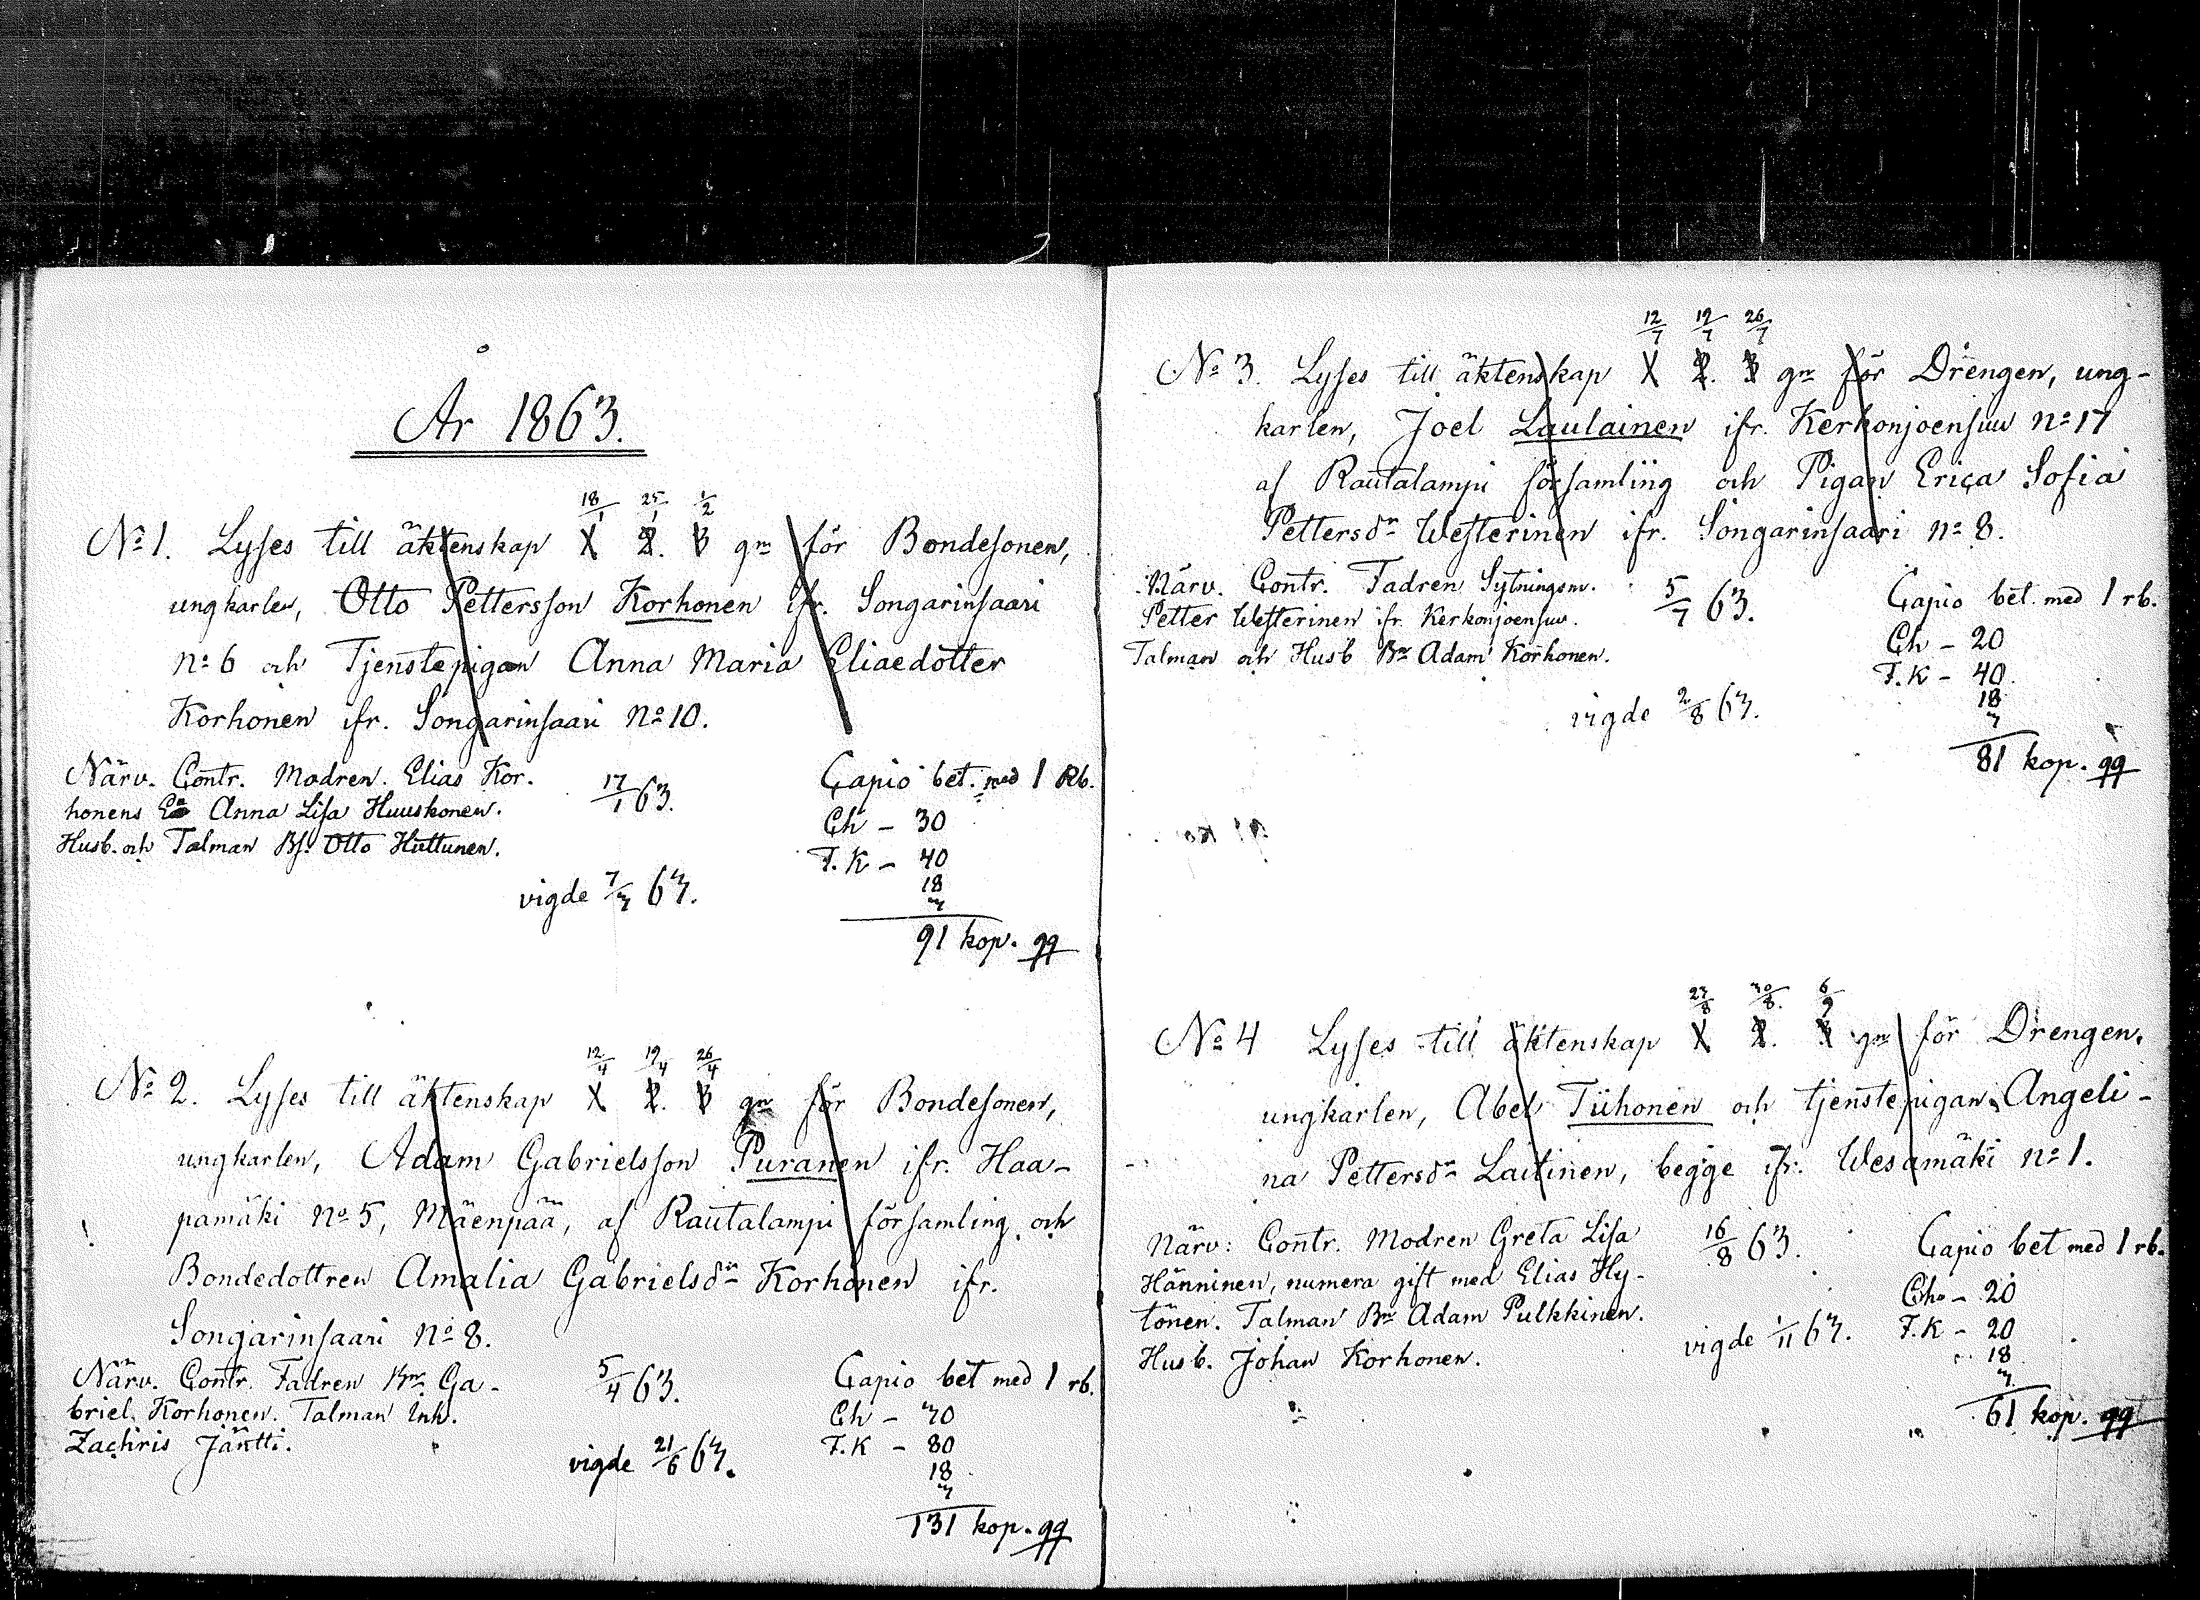 År 1863.
18/1 25/1 1/2
No 1. Lyses till äktenskap 1 2. 3 gn för Bondesonen,
ungkarlen, Otto Pettersson Korhonen ifr. Songarinsaari
no 6 och Tjenstepigan Anna Maria Eliaedotter
Korhonen ifr. Songarinsaari No 10.
Närv. Contr. Modren. Elias Kor.
honens Anna Lisa Huuskonen.
Husb. och Talman Bs. Otto Huttunen.
17/1 63.
vigde 7/3 63.
Capio bet. med 1 Rb.
Ch - 30
F.K - 40
18
3
91 kop. gg
12/4 19/4 26/4
No 2. Lyses till äktenskap 1 2. 3 gn för Bondesonen,
ungkarlen, Adam Gabrielsson Puranen ifr. Haa-
pamäki no 5, Mäenpää, af Rautalampi församling och
Bondedottren Amalia Gabrielsdr Korhonen ifr.
Songarinsaari No 8.
Närv. Contr. Fadren Bn. Ga-
briel Korhonen. Talman Inh.
Zachris Jäntti.
5/4 63.
vigde 21/6 63.
Capio bet med 1 rb.
Ch - 30
F.K - 80
18
3
131 kop. gg
12/7 19/7 26/7
No 3. Lyses till äktenskap 1 2. 3 gn för Drengen, ung-
karlen, Joel Laulainen ifr. Kerkonjoensuu no 17
af Rautalampi församling och Pigan Erica Sofia
Pettersdr Westerinen ifr. Songarinsaari no 8.
Närv. Contr. Fadren Sytningsm.
Petter Westerinen ifr. Kerkonjoensuu.
Talman och Husb Bn Adam Korhonen.
5/7 63.
vigde 2/8 63.
Capio bet. med 1 rb.
Ch - 20
F.K - 40
18
3
81 kop. gg
23/8 30/8. 6/9
No 4 Lyses till äktenskap 1 2. 3 gn för Drengen,
ungkarlen, Abel Tiihonen och tjenstepigan Angeli-
na Pettersdr Laitinen, begge ifr. Wesamäki no 1.
Närv: Contr. Modren Greta Lisa
Hänninen, numera gift med Elias Hy-
tönen. Talman Bn Adam Pulkkinen.
Husb. Johan Korhonen.
16/8 63.
vigde 1/11 63.
Capio bet med 1 rb.
Ch - 20
F.K - 20
18
3
61 kop. gg